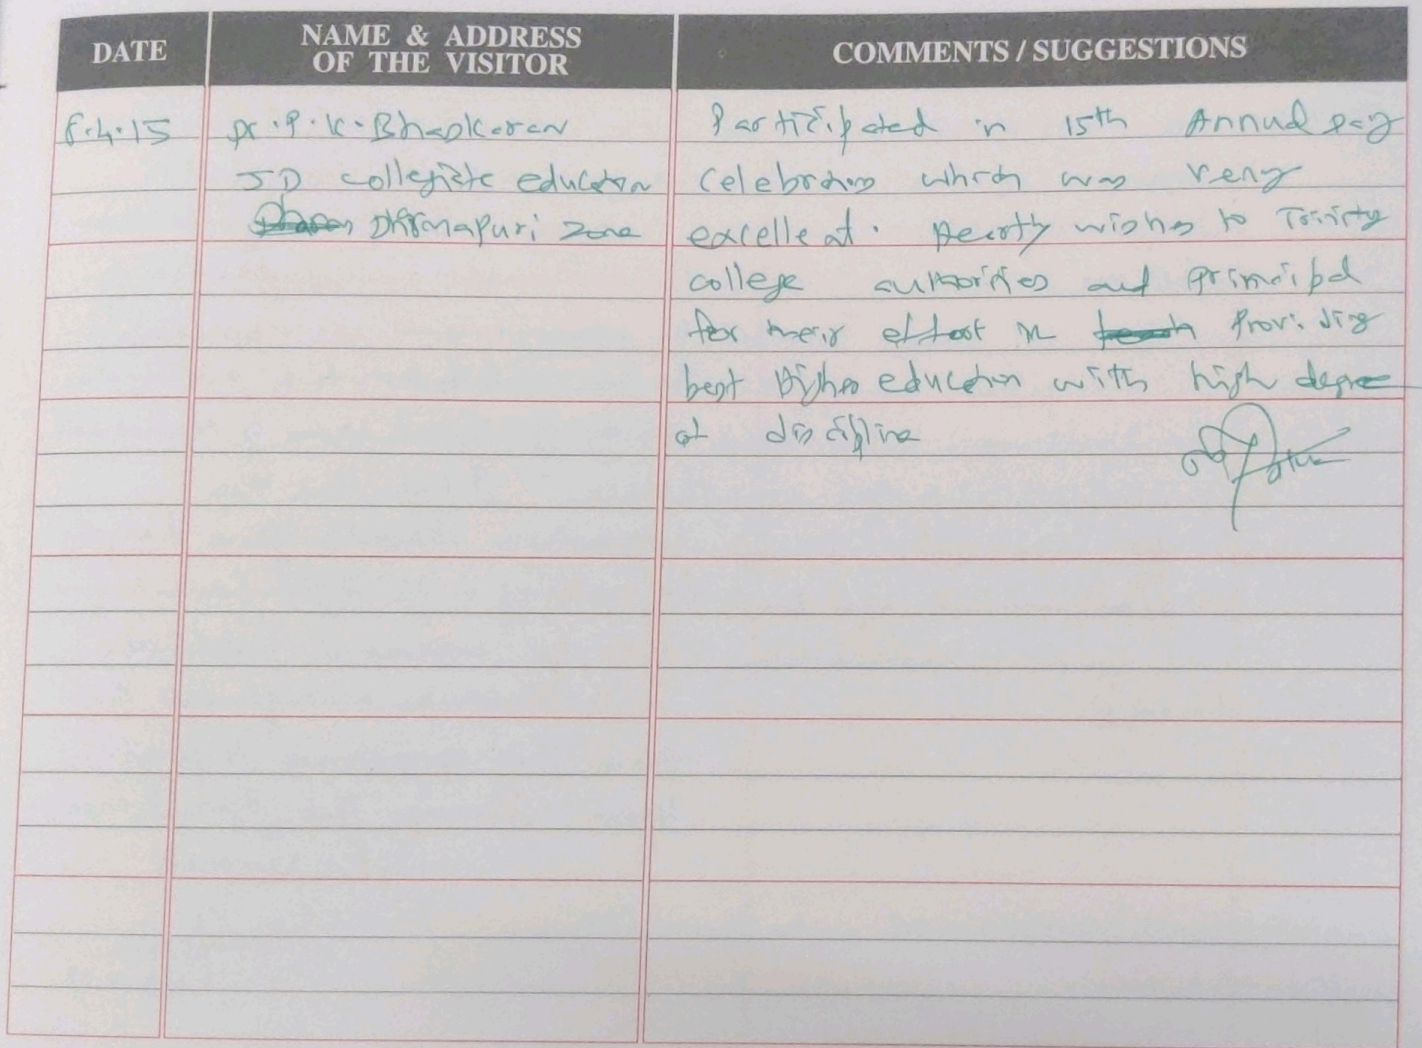 DATE
NAME & ADDRESS
OF THE VISITOR
COMMENTS / SUGGESTIONS
8.4.15
Dr. P. K. Bhaskaran
JD collegiate education
Dharmapuri Zone
Participated in 15th Annual Day
celebration which was very
excellent. Hearty wishes to Trinity
college authorities and principal
for their effort in providing
best higher education with high degree
of discipline